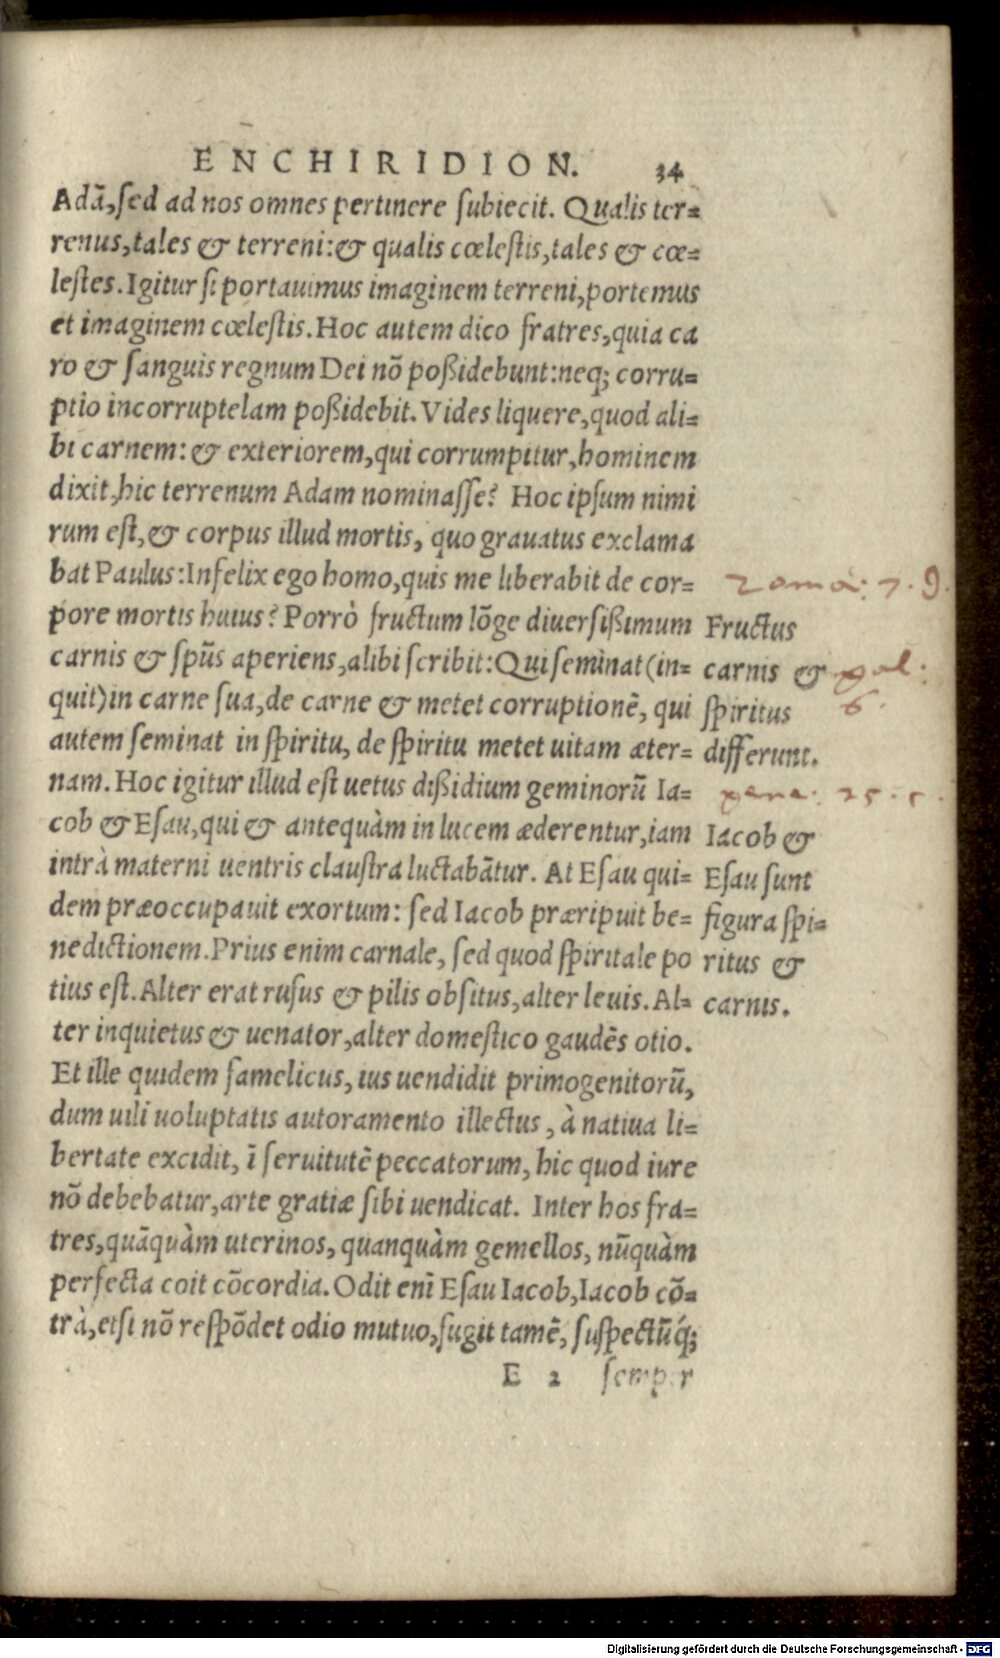 ENCHIRIDION. 34
Adā, sed ad nos omnes pertinere subiecit. Qualis ter=
renus, tales & terreni: & qualis cœlestis, tales & cœ=
lestes. Igitur si portauimus imaginem terreni, portemus
et imaginem cœlestis. Hoc autem dico fratres, quia ca
ro & sanguis regnum Dei nō poßidebunt: neq; corru=
ptio incorruptelam poßidebit. Vides liquere, quod ali=
bi carnem: & exteriorem, qui corrumpitur, hominem
dixit, hic terrenum Adam nominasse? Hoc ipsum nimi
rum est, & corpus illud mortis, quo grauatus exclama
bat Paulus: Infelix ego homo, quis me liberabit de cor=
pore mortis huius? Porrò fructum lōge diuersißimum
carnis & spūs aperiens, alibi scribit: Qui seminat (in=
quit) in carne sua, de carne & metet corruptionē, qui
autem seminat in spiritu, de spiritu metet uitam æter=
nam. Hoc igitur illud est uetus dißidium geminorū Ia=
cob & Esau, qui & antequàm in lucem æderentur, iam
intrà materni uentris claustra luctabātur. At Esau qui=
dem præoccupauit exortum: sed Iacob præripuit be=
nedictionem. Prius enim carnale, sed quod spiritale po
tius est. Alter erat rufus & pilis obsitus, alter leuis. Al=
ter inquietus & uenator, alter domestico gaudēs otio.
Et ille quidem famelicus, ius uendidit primogenitorū,
dum uili uoluptatis autoramento illectus, à natiua li=
bertate excidit, ī seruitutē peccatorum, hic quod iure
nō debebatur, arte gratiæ sibi uendicat. Inter hos fra=
tres, quāquàm uterinos, quanquàm gemellos, nūquàm
perfecta coit cōcordia. Odit enī Esau Iacob, Iacob cō=
trà, etsi nō respōdet odio mutuo, fugit tamē, suspectūq́;
E 2 semper
Roma: 7. g.
Fructus
carnis &
spiritus
differunt.
gal:
6.
gene: 25. c.
Iacob &
Esau sunt
figura spi=
ritus &
carnis.
Digitalisierung gefördert durch die Deutsche Forschungsgemeinschaft - DFG